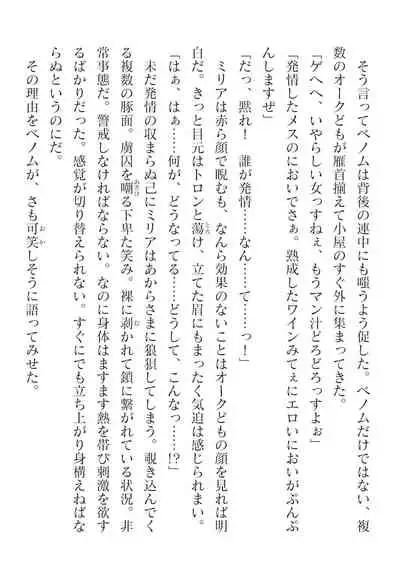 そう言ってベノムは背後の連中にも嗤うよう促した。ベノムだけではない、複
数のオークどもが雁首揃えて小屋のすぐ外に集まってきた。
「ゲヘヘ、いやらしい女っすねぇ、もうマン汁どろどろっすよぉ」
「発情したメスのにおいでさぁ。熟成したワインみてぇにエロいにおいがぷんぷ
んしますぜ」
「だっ、黙れ！　誰が発情……なん……て……っ！」
ミリアは赤ら顔で睨むも、なんら効果のないことはオークどもの顔を見れば明
白だ。きっと目元はトロンと蕩け、立てた眉にもまったく気迫は感じられまい。
「はぁ、はぁ……何が、どうなってる……どうして、こんなっ……!?」
未だ発情の収まらぬ己にミリアはあからさまに狼狽してしまう。覗き込んでく
る複数の豚面。虜囚を嘲る下卑た笑み。裸に剥かれて鎖に繋がれている状況。非
常事態だ。警戒しなければならない。なのに身体はますます熱を帯び刺激を欲す
るばかりだった。感覚が切り替えられない。すぐにでも立ち上がり身構えねばな
らぬというのにだ。
その理由をベノムが、さも可笑しそうに語ってみせた。